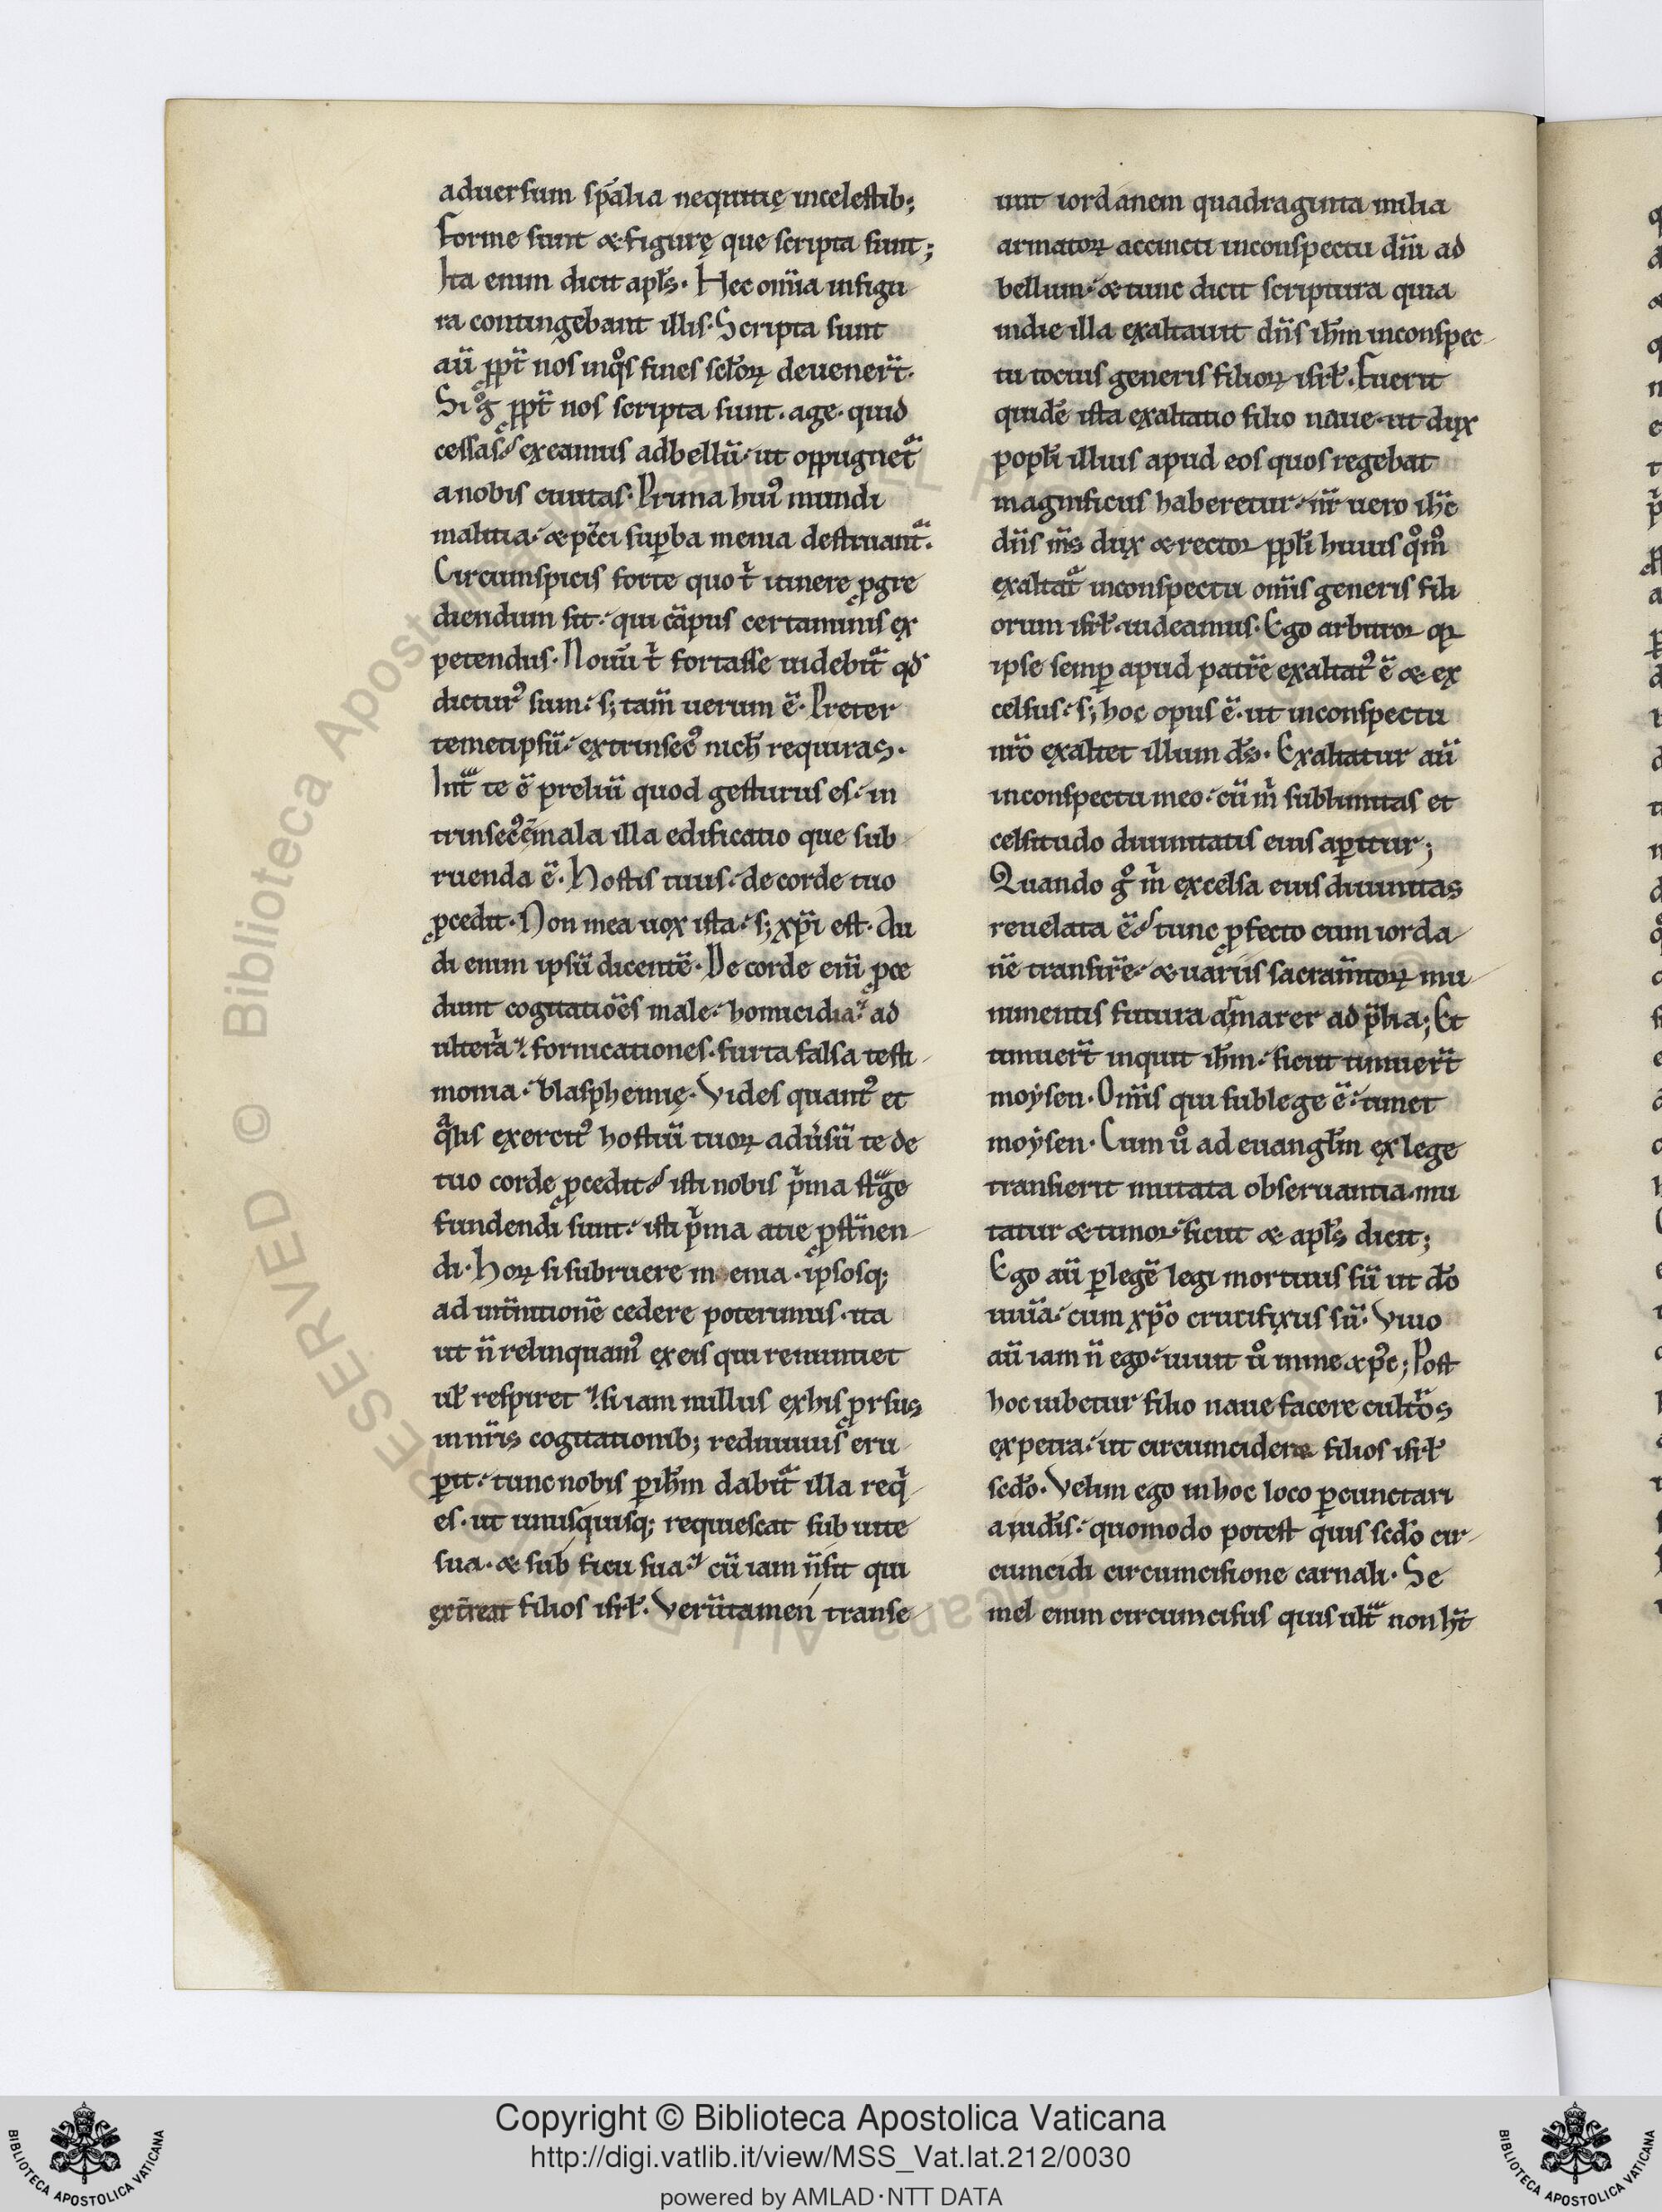 aduersum sp̄alia nequitię incelestib;
Forme sunt & figurę que scripta sunt;
Ita enim dicit apl's. Hec om̄ia infigu
ra contingebant illis. Scripta sunt
aū ꝓpt̄ nos inq̊s fines sc̄loꝝ deuener̄t.
Si g̊ ꝓpt̄ nos scripta sunt. age. quid
cessas? exeamus adbellū. ut oppugnet᷑
anobis ciuitas. Prima hui᷒ mundi
malitia. & pc̄ci sup̱ba menia destruant᷑.
Circumspicis forte quo t' itinere ꝓgre
diendum sit. qui cāpus certaminis ex
petendus. Nouū t' fortasse uidebit᷑ qd̄
dictur᷒ sum. s; tam̄ uerum ē. Preter
temetipsū. extrinsec᷒ nich̄ requiras.
Int᷑ te ē preliū quod gesturus es. in
trinsec᷒ ē mala illa edificatio que sub
ruenda ē. Hostis tuus. de corde tuo
ꝓcedit. Non mea uox ista. s; xp̄i est. Au
di enim ipsū dicentē. De corde eni ꝓce
dunt cogitatiōes male. homicidia. ad
ulteria. fornicationes. furta falsa testi
monia. blasphemię. Vides quant᷒ et
qᵃlis exercit᷒ hostiū tuoꝝ adu'sū te de
tuo corde ꝓcedit? isti nobis p'ma stᵃge
fundendi sunt. isti p'ma acie ꝓst'nen
di. Hoꝝ si subruere menia. ipsosq;
ad int̄nitionē cedere poterimus. ita
ut n̄ relinquam᷒ exeis qui renuntiet
ul' respiret. si iam nullus exhis ꝓrsus
inn̄ris cogitationib; rediuiuus eru
p̱it. tunc nobis p̱ih̄m dabit᷑ illa req'
es. ut unusquisq; requiescat sub uite
sua. & sub ficu sua. cū iam n̄sit qui
ext̄reat filios isrl̄. Verūtamen transe
unt iordanem quadraginta milia
armatoꝝ accincti inconspectu dn̄i ad
bellum. & tunc dicit scriptura quia
indie illa exaltauit dn̄s ih̄m inconspec
tu tocius generis filioꝝ isrl̄. Fuerit
quidē ista exaltatio filio naue. ut dux
popl̄i illius apud eos quos regebat
magnificus haberetur. n̄r uero ih̄c
dn̄s n̄s dux & rector ppl̄i huius q̊m̊
exaltat᷑ inconspectu om̄is generis fili
orum isrl̄. uideamus. Ego arbitror qꝛ
ipse semp̱ apud patrē exaltat᷒ ē & ex
celsus. s; hoc opus ē. ut inconspectu
nr̄o exaltet illum d̄s. Exaltatur aū
inconspectu meo. cū m' sublimitas et
celsitudo diuinitatis eius ap̱itur;
Quando g̊ m' excelsa eius diuinitas
reuelata ē? tunc ꝓfecto cum iorda
nē transirē. & uariis sacram̄toꝝ mu
nimentis futura armarer ad p̄lia; Et
timuer̄t inquit ih̄m. sicut timuer̄t
moẏsen. Om̄is qui sublege ē. timet
moẏsen. Cum ů ad euangl̄m exlege
transierit mutata obseruantia. mu
tatur & timor. sicut & apl's dicit;
Ego aū p̱legē legi mortuus sū ut d̄o
uiuā. cum xp̄o crucifixus sū. Viuo
aū iam n̄ ego. uiuit ů inme xp᷒c; Post
hoc iubetur filio naue facere cultr̄os
expetra. ut circumcidere filios isrl̄
scd̄o. Velim ego inhoc loco p̱cunctari
aiud̄is. quomodo potest quis scd̄o cir
cumcidi circumcisione carnali. Se
mel enim circumcisus quis ult᷑ non h̄t
Copyright © Biblioteca Apostolica Vaticana
http://digi.vatlib.it/view/MSS_Vat.lat.212/0030
powered by AMLAD·NTT DATA